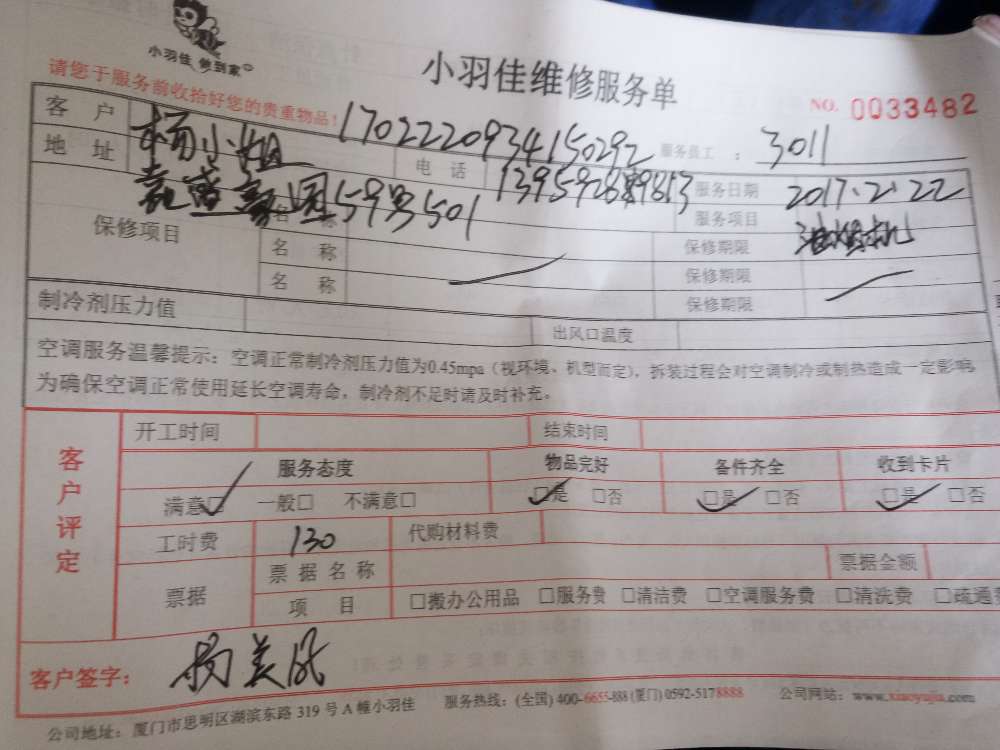 小羽佳 做到家
小羽佳维修服务单
请您于服务前收拾好您的贵重物品!
NO. 0033482
客 户 杨小姐 1702220934150292 服务员工 : 3011
地 址 59号501 电 话 服务日期 2017.2.22
保修项目 名 称 服务项目 油烟机
名 称 保修期限
名 称 保修期限
保修期限
制冷剂压力值 出风口温度
空调服务温馨提示：空调正常制冷剂压力值为0.45mpa（视环境、机型而定），拆装过程会对空调制冷或制热造成一定影响，
为确保空调正常使用延长空调寿命，制冷剂不足时请及时补充。
客户评定
开工时间 结束时间
服务态度 物品完好 备件齐全 收到卡片
满意□ 一般□ 不满意□ □是 □否 □是 □否 □是 □否
工时费 130 代购材料费
票据 票据名称 票据金额
项 目 □搬办公用品 □服务费 □清洁费 □空调服务费 □清洗费 □疏通费
客户签字： 杨美凤
公司地址：厦门市思明区湖滨东路 319 号 A 幢小羽佳 服务热线：(全国) 400-6655-888 (厦门) 0592-5178888 公司网站：www.xiaoyujia.com